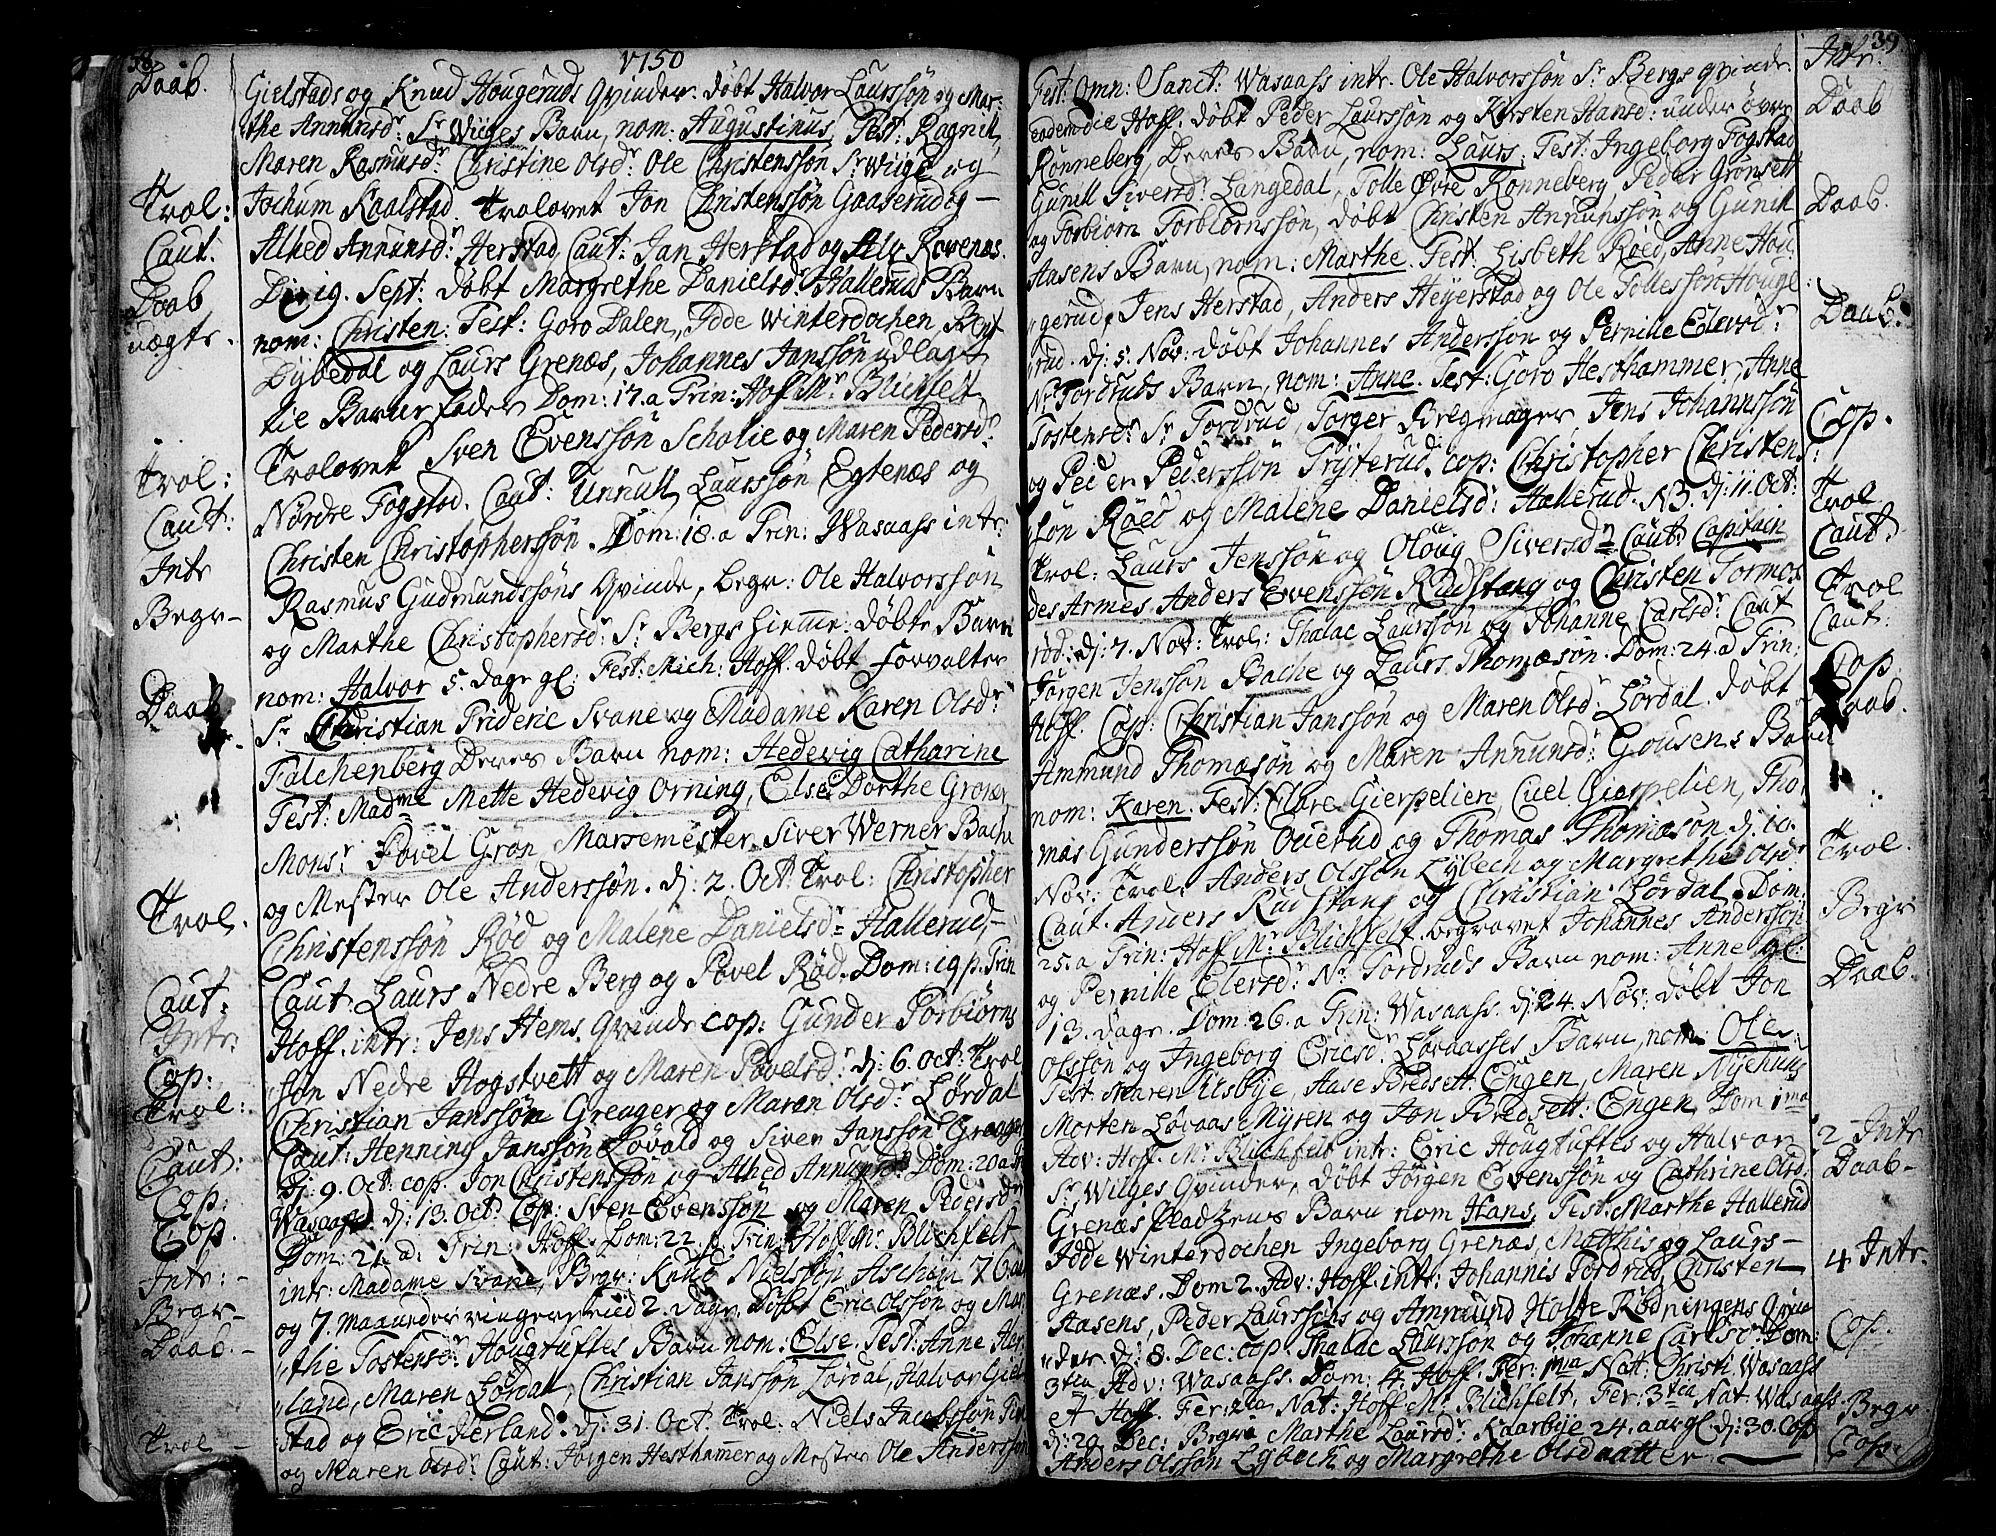 38
1750
Daab.
Gielstads og Knud Hougeruds Qvinder. døbt Halvor Laurssøn og Mar-
the Annunsdr. Sr Wiiges Barn, nom. Augustinus, Test: Ragnill,
Maren Rasmusdr Christine Olsdr. Ole Christenssøn Sr Wiige og
Trol: Jochum Kaalstad. Trolovet Jon Christenssøn Gaaserud og
Caut. Alhed Annunsdr Herstad, Caut: Jan Herstad og Alv Ravenæs.
Daab Die 19. Sept: døbt Margrethe Danielsdr Hallerud Barn
uægte. nom: Christen: Test: Goro Dalen, Idde Winterdochen, Bent
Dybedal og Laurs Grenæs, Johannes Janssøn udlagt
til Barne Fader Dom: 17. a Trin: Hof Mr Blichfelt
Trol: Trolovet Sven Evenssøn Scholie og Maren Pedersdr
Caut: Nordre Fogstad. Caut: Unnull Laurssøn Egtenæs og
Christen Christopherssøn. Dom: 18. a Trin: Wasaass intr:
Intr Rasmus Gudmundssøns Qvinde, begr: Ole Halvorssøn
Begr- og Marthe Christophersdr Sr Bergs hiemme døbte Barn
nom: Halvor 5. dage gl: Fest: Mich: Hoff. døbt Forvalter
Daab Sr Christian Frideric Svane og Madame Karen Olsdr
Falchenberg Deres Barn nom: Hedevig Catharine
Test: Madme Mette Hedevig Orning, Else Dorthe Groner,
Monsr Povel Grøn Marsemester Siver Werner Bache
og Mester Ole Anderssøn. dj: 2. Oct: Trol: Christopher
Trol. Christenssøn Rød og Malene Danielsdr Hallerud,-
Caut: Caut. Laurs Nedre Berg og Povel Rød. Dom: 19 p. Trin
Intr: Hoff. intr: Jens Hems Qvinde cop: Gunder Torbiørns
Cop: søn Nedre Hogstvett og Maren Povelsdr dj: 6. Oct: Trol
Trol: Christian Janssøn Greager og Maren Olsdr Lørdal
Caut: Caut: Henning Janssøn Løvald og Siver Janssøn Greager
Cop: Dj: 9. Oct: cop. Jon Christenssøn og Alhed Annunsdr Dom: 20 a Tr
Cop. Wasaass dj: 13. Oct: Cop: Sven Evenssøn og Maren Pedersdr
Dom: 21. a: Trin: Hoff. Dom: 22. a Trin: Hoff Mr Blichfelt
Intr:- intr: Madame Svane, Begr: Knud Nielssøn Aschim 76. aar
Begr- og 7. maaneder ringere end 2. Dage døbt Eric Olssøn og Mar
Daab.- the Tostensdr Hougtuftes Barn nom. Else, Test: Anne Har
land, Maren Lørdal, Christian Janssøn Lørdal, Halvor Giel
stad og Eric Herland. dj: 31 Oct: Trol: Niels Jacobssøn Fin
Trol- og Maren Olsdr Caut: Jørgen Hesthammer og Mester Ole Anderssøn
39
Fest: Omn: Sanct: Wasaass intr. Ole Halvorssøn Sr Bergs qvinde. Intr.
eadem die Hoff. døbt Peder Laurssøn og Kirsten Hansd: under øvre Daab
Rønneberg, Deres Barn, nom: Laurs, Test: Ingeborg Fogstad
Gunill Siversdr Langedal, Tolle Øvre Rønneberg Peder Grønsett
og Torbiørn Torbiørnssøn, døbt Christen Annunssøn og Gunill Daab.
Aasens Barn, nom: Marthe. Test. Lisbeth Røed, Anne Hou
gerud, Jens Herstad, Anders Heyerstad og Ole Tollessøn Houge
rud. dj: 5. Nov: døbt Johannes Anderssøn og Pernille Edersdr Daab.
Nr Tordruds Barn, nom: Anne. Test: Goro Hesthammer, Anne
Tostensdr Sr Tordrud, Torger Bregmager, Jens Johannssøn
og Peder Pederssøn Tryterud. cop: Christopher Christens Cop.
søn Røed og Malene Danielsd: Hallerud. NB. dj: 11. Oct: Trol
Trol: Laurs Jenssøn og Oloug Siversdr Caut: Capitain Caut:
des Armes Anders Evenssøn Rudstang og Christen Tormos
rød: dj: 7. Nov: Trol: Thalac Laurssøn og Johanne Carlsdr Caut Trol
Jørgen Jenssøn Bache og Laurs Thomæsøn. Dom: 24. a Trin: Caut:
Hoff. Cop: Christian Janssøn og Maren Olsdr Lørdal. døbt Cop
Ammund Thomæsøn og Maren Annunsdr Gousens Barn Daab.
nom: Karen. Test: Clare Gierpelien, Cuel Gierpelien, Tho
mas Gunderssøn Ouestad og Thomas Thomæsøn. dj: 10.
Nov: Trol: Anders Olssøn Lybech og Margrethe Olsdr Trol.
Caut. Anders Rudstang og Christian Lørdal. Dom:
25. a Trin: Hoff Mr Blichfelt. begravet Johannes Anderssøn Begr
og Pernille Elersdr Nr Tordruds Barn nom: Anne gl:
13. dage. Dom: 26. a Trin: Wasaass. dj: 24. Nov: døbt Jon Daab.
Olssøn og Ingeborg Ericsdr Løvaasses Barn, nom: Ole.
Test: Maren Risbye, Aase Bredsett: Engen, Maren Nyehuus
Morten Løvaas Myren og Jon Bredsett: Engen, Dom 1ma
Adv: Hoff. Mr Blichfelt intr: Eric Hougtuftes og Halvor 2 Intr
Sr Wiiges Qvinder, døbt Jørgen Evenssøn og Cathrine Olsdr Daab-
Grenæs Pladzens Barn nom Hans, Test: Marthe Hallerud
Idde Winterdochen Ingeborg Grenæs, Matthis og Laurs-
Grenæs. Dom 2. Adv: Hoff intr: Johannis Tordrud, Christen 4 Intr.
Aasens, Peder Laurssøns og Ammund Holte Rødningens Qvin
der. dj: 8. Dec: cop. Thalac Laurssøn og Johanne Carlsdr Dom: Cop.
3tia Adv: Wasaass. Dom: 4. Hoff. Fer: 1ma Nat: Christi Wasaass
et Hoff. Fer: 2da Nat: Hoff Mr Blichfelt, Fer: 3tia Nat: Wasaass.
dj: 29. Dec: Begr: Marthe Laursdr Kaarbye 24. aar gl dj: 30. Cop Begr
Anders Olssøn Lybech og Margrethe Olsdaatter. Cop.